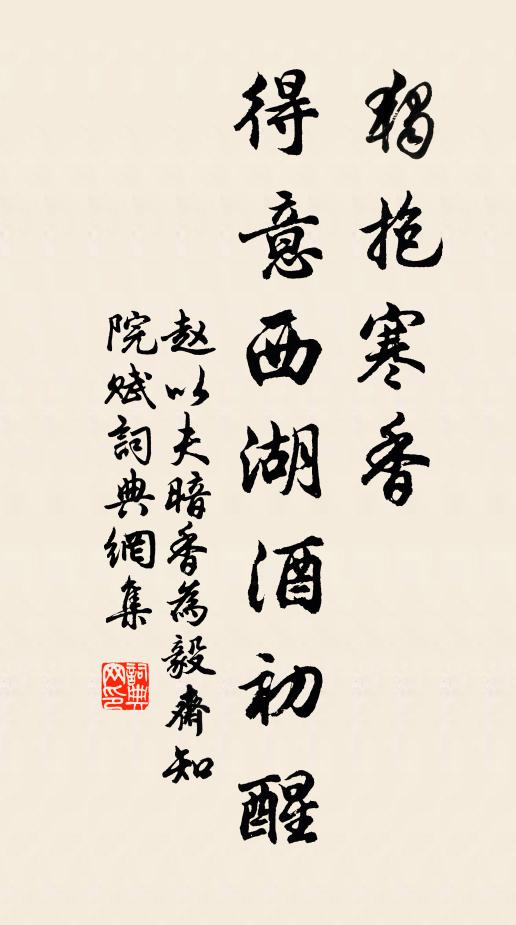 獨抱寒香
得意西湖酒初醒
赵以夫暗香為毅齋知
院賦詞典網集
詞典
网印